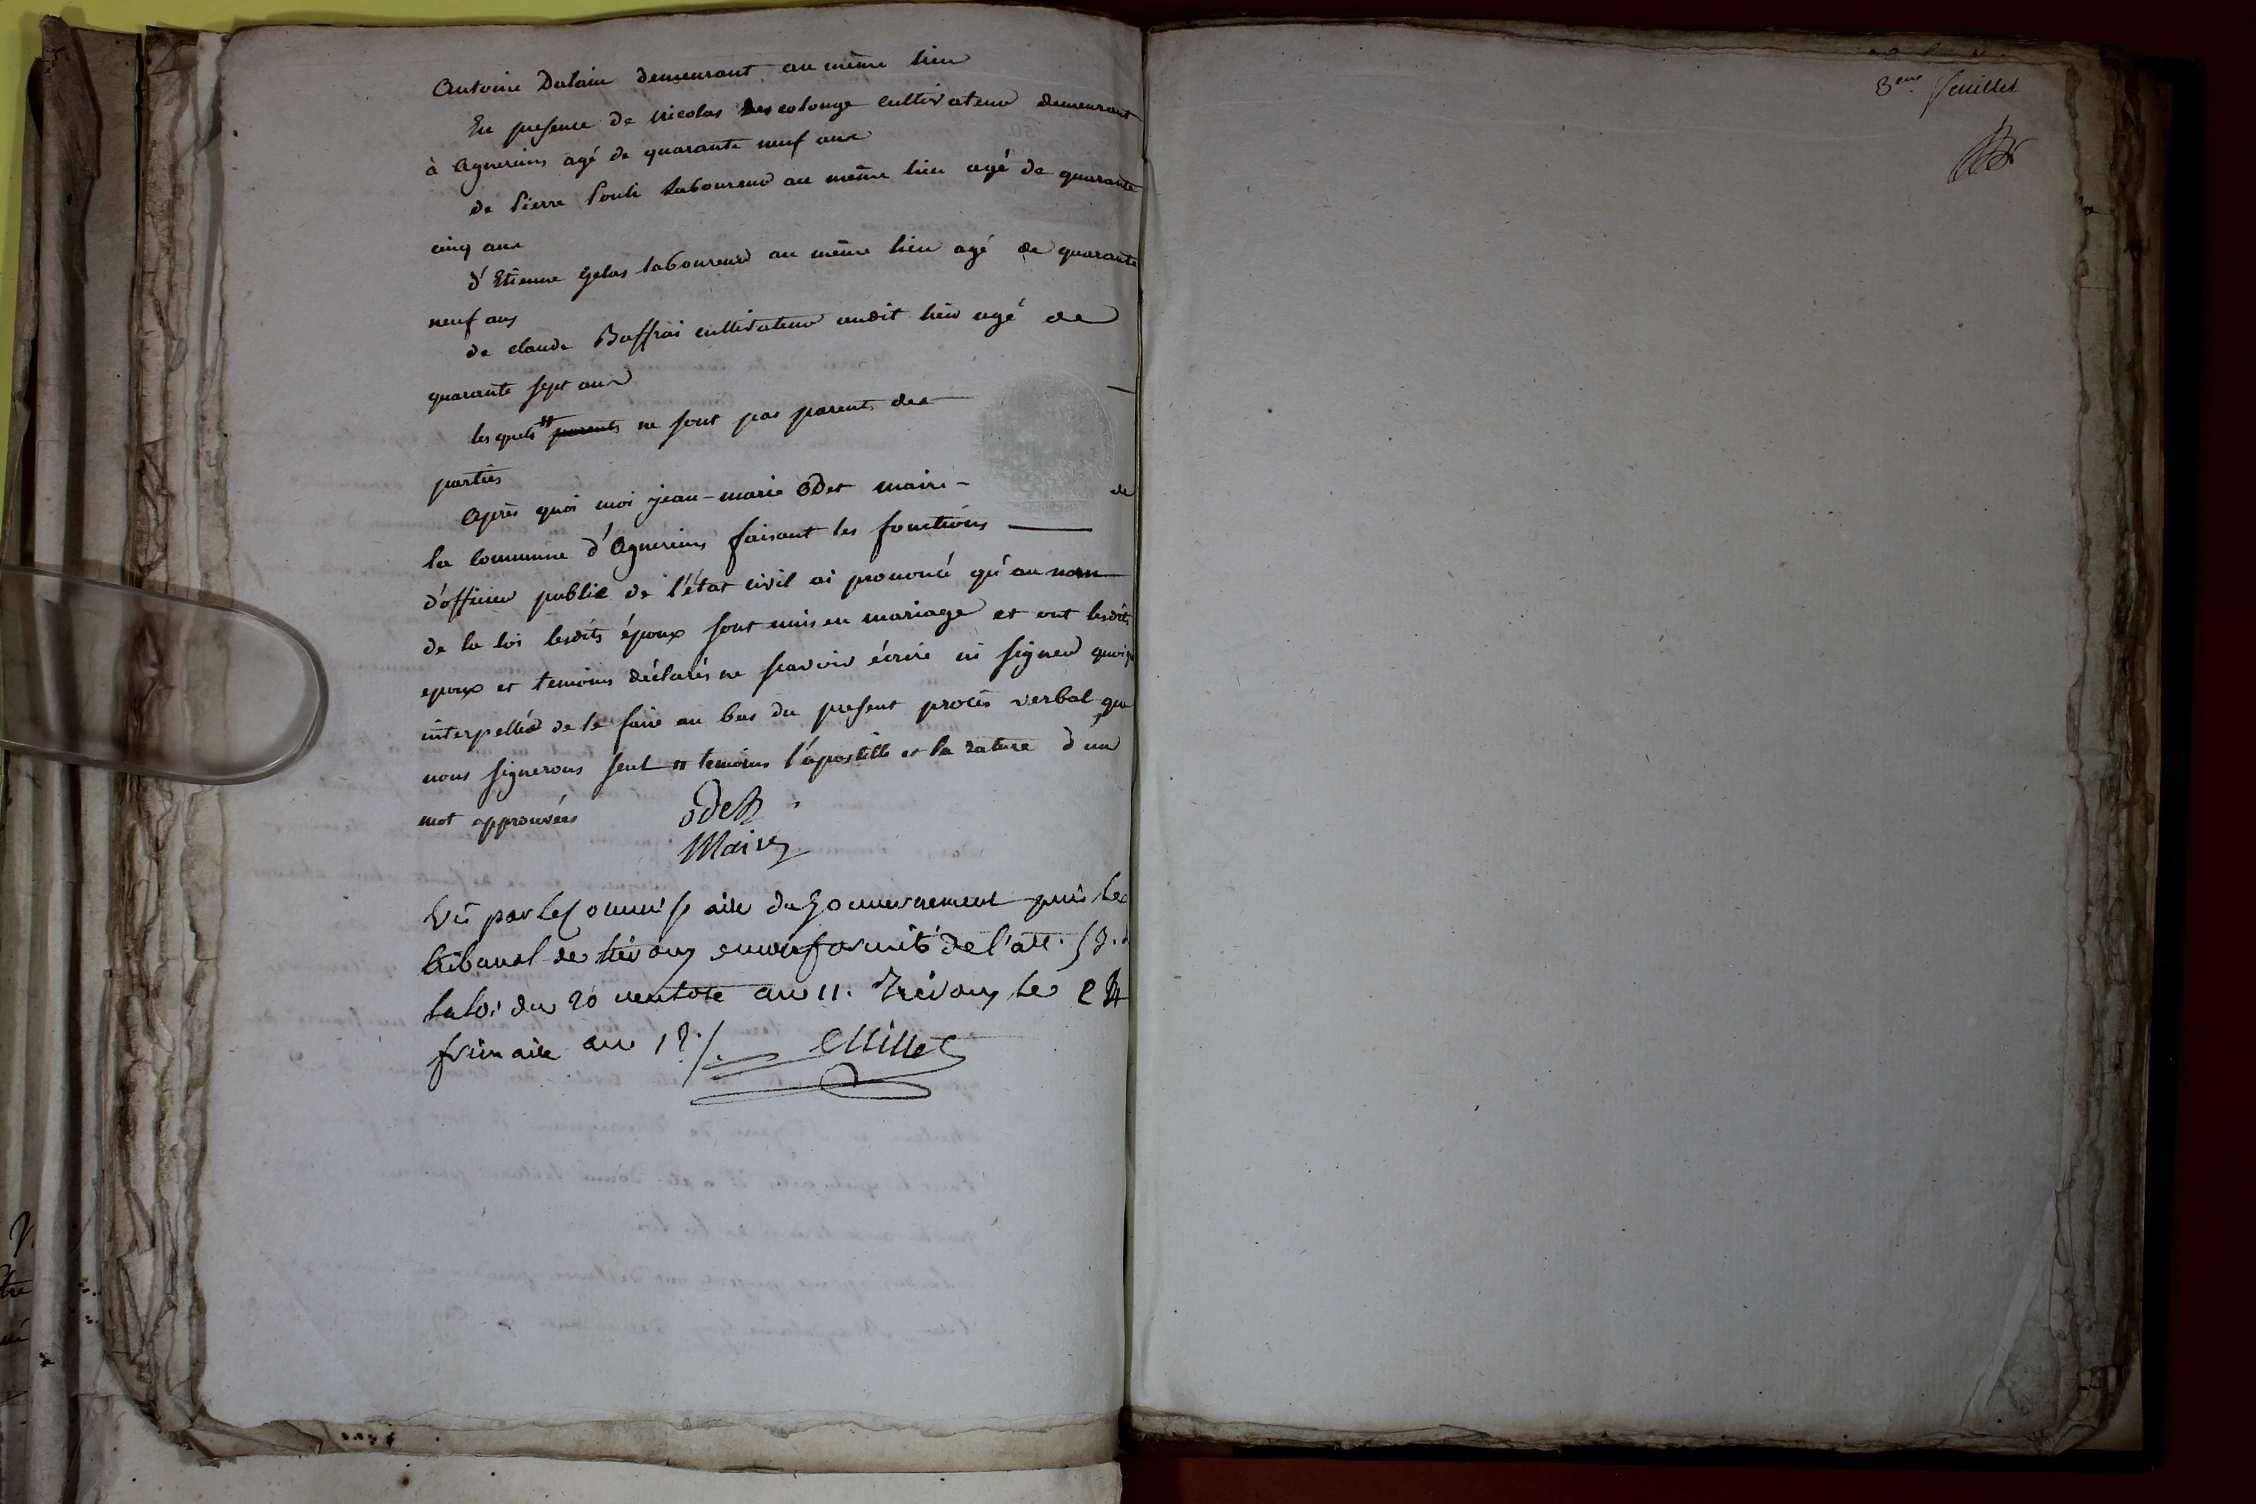 Antoine Dalain demeurant au même lieu
En presence de nicolas Descolonge cultivateur demeurant
à Agnereins agé de quarante neuf ans
de Pierre Laboureur au même lieu agé de quarante
cinq ans
d'Etienne Gelas laboureur au même lieu agé de quarante
neuf ans
de claude Baffrai cultivateur audit lieu agé de
quarante sept ans
lesquels # parents ne sont pas parents des
parties
Après quoi moi jean-marie Odet maire - de
la Commune d'Agnereins faisant les fonctions
d'officier public de l'état civil ai prononcé qu'au nom
de la loi lesdits époux sont unis en mariage et ont lesdits
epoux et temoins déclarés ne scavoir écrire ni signer quoiq
interpellés de le faire au bas du present procès verbal que
nous signerons seul # temoins l'apostille et la rature d'un
mot approuvées
Odet
Maire
Vû par le Commissaire du Gouvernement près le
tribunal de trévoux en conformité de l'art. 53. d
la loi du 20 ventose an 11. Trévoux le 24
frimaire an 12./.
Millet
3eme. feuillet